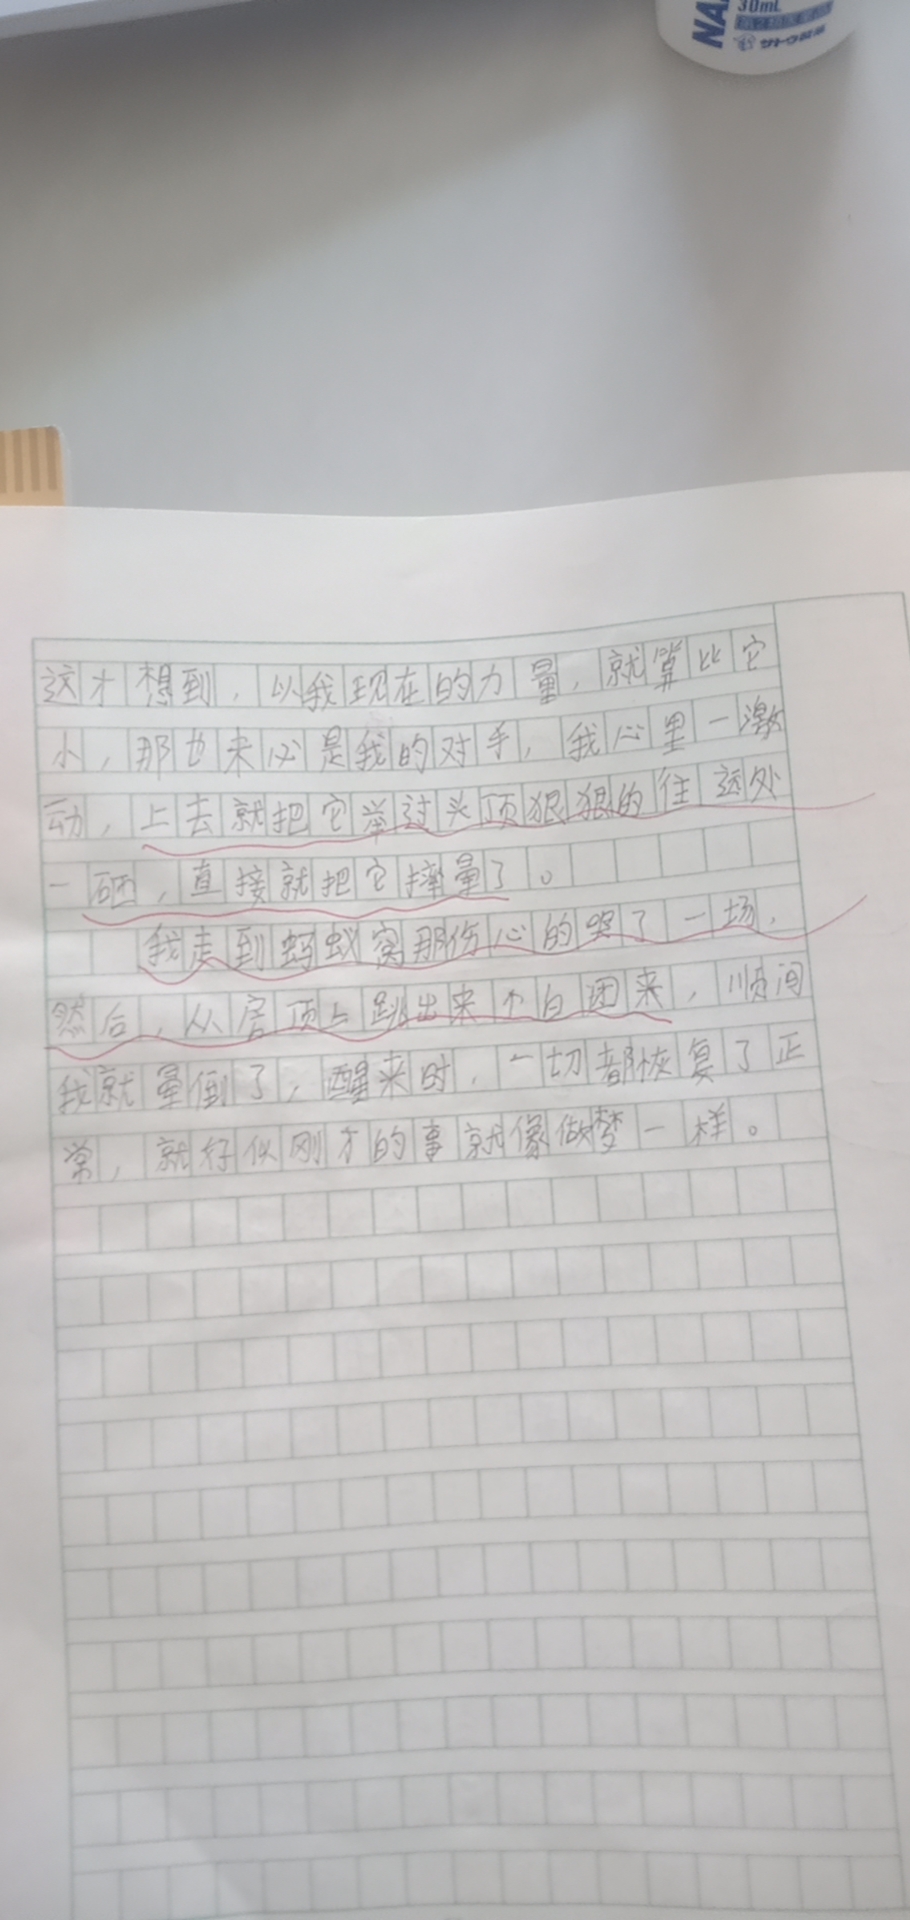 NA
30mL
サトウ製薬
这才想到，以我现在的力量，就算比它
小，那也来必是我的对手，我心里一激
动，上去就把它举过头顶狠狠的往远处
一砸，直接就把它摔晕了。
我走到蚂蚁窝那伤心的哭了一场，
然后，从房顶上跳出来个白团来，顺间
我就晕倒了，醒来时，一切都恢复了正
常，就好似刚才的事就像做梦一样。